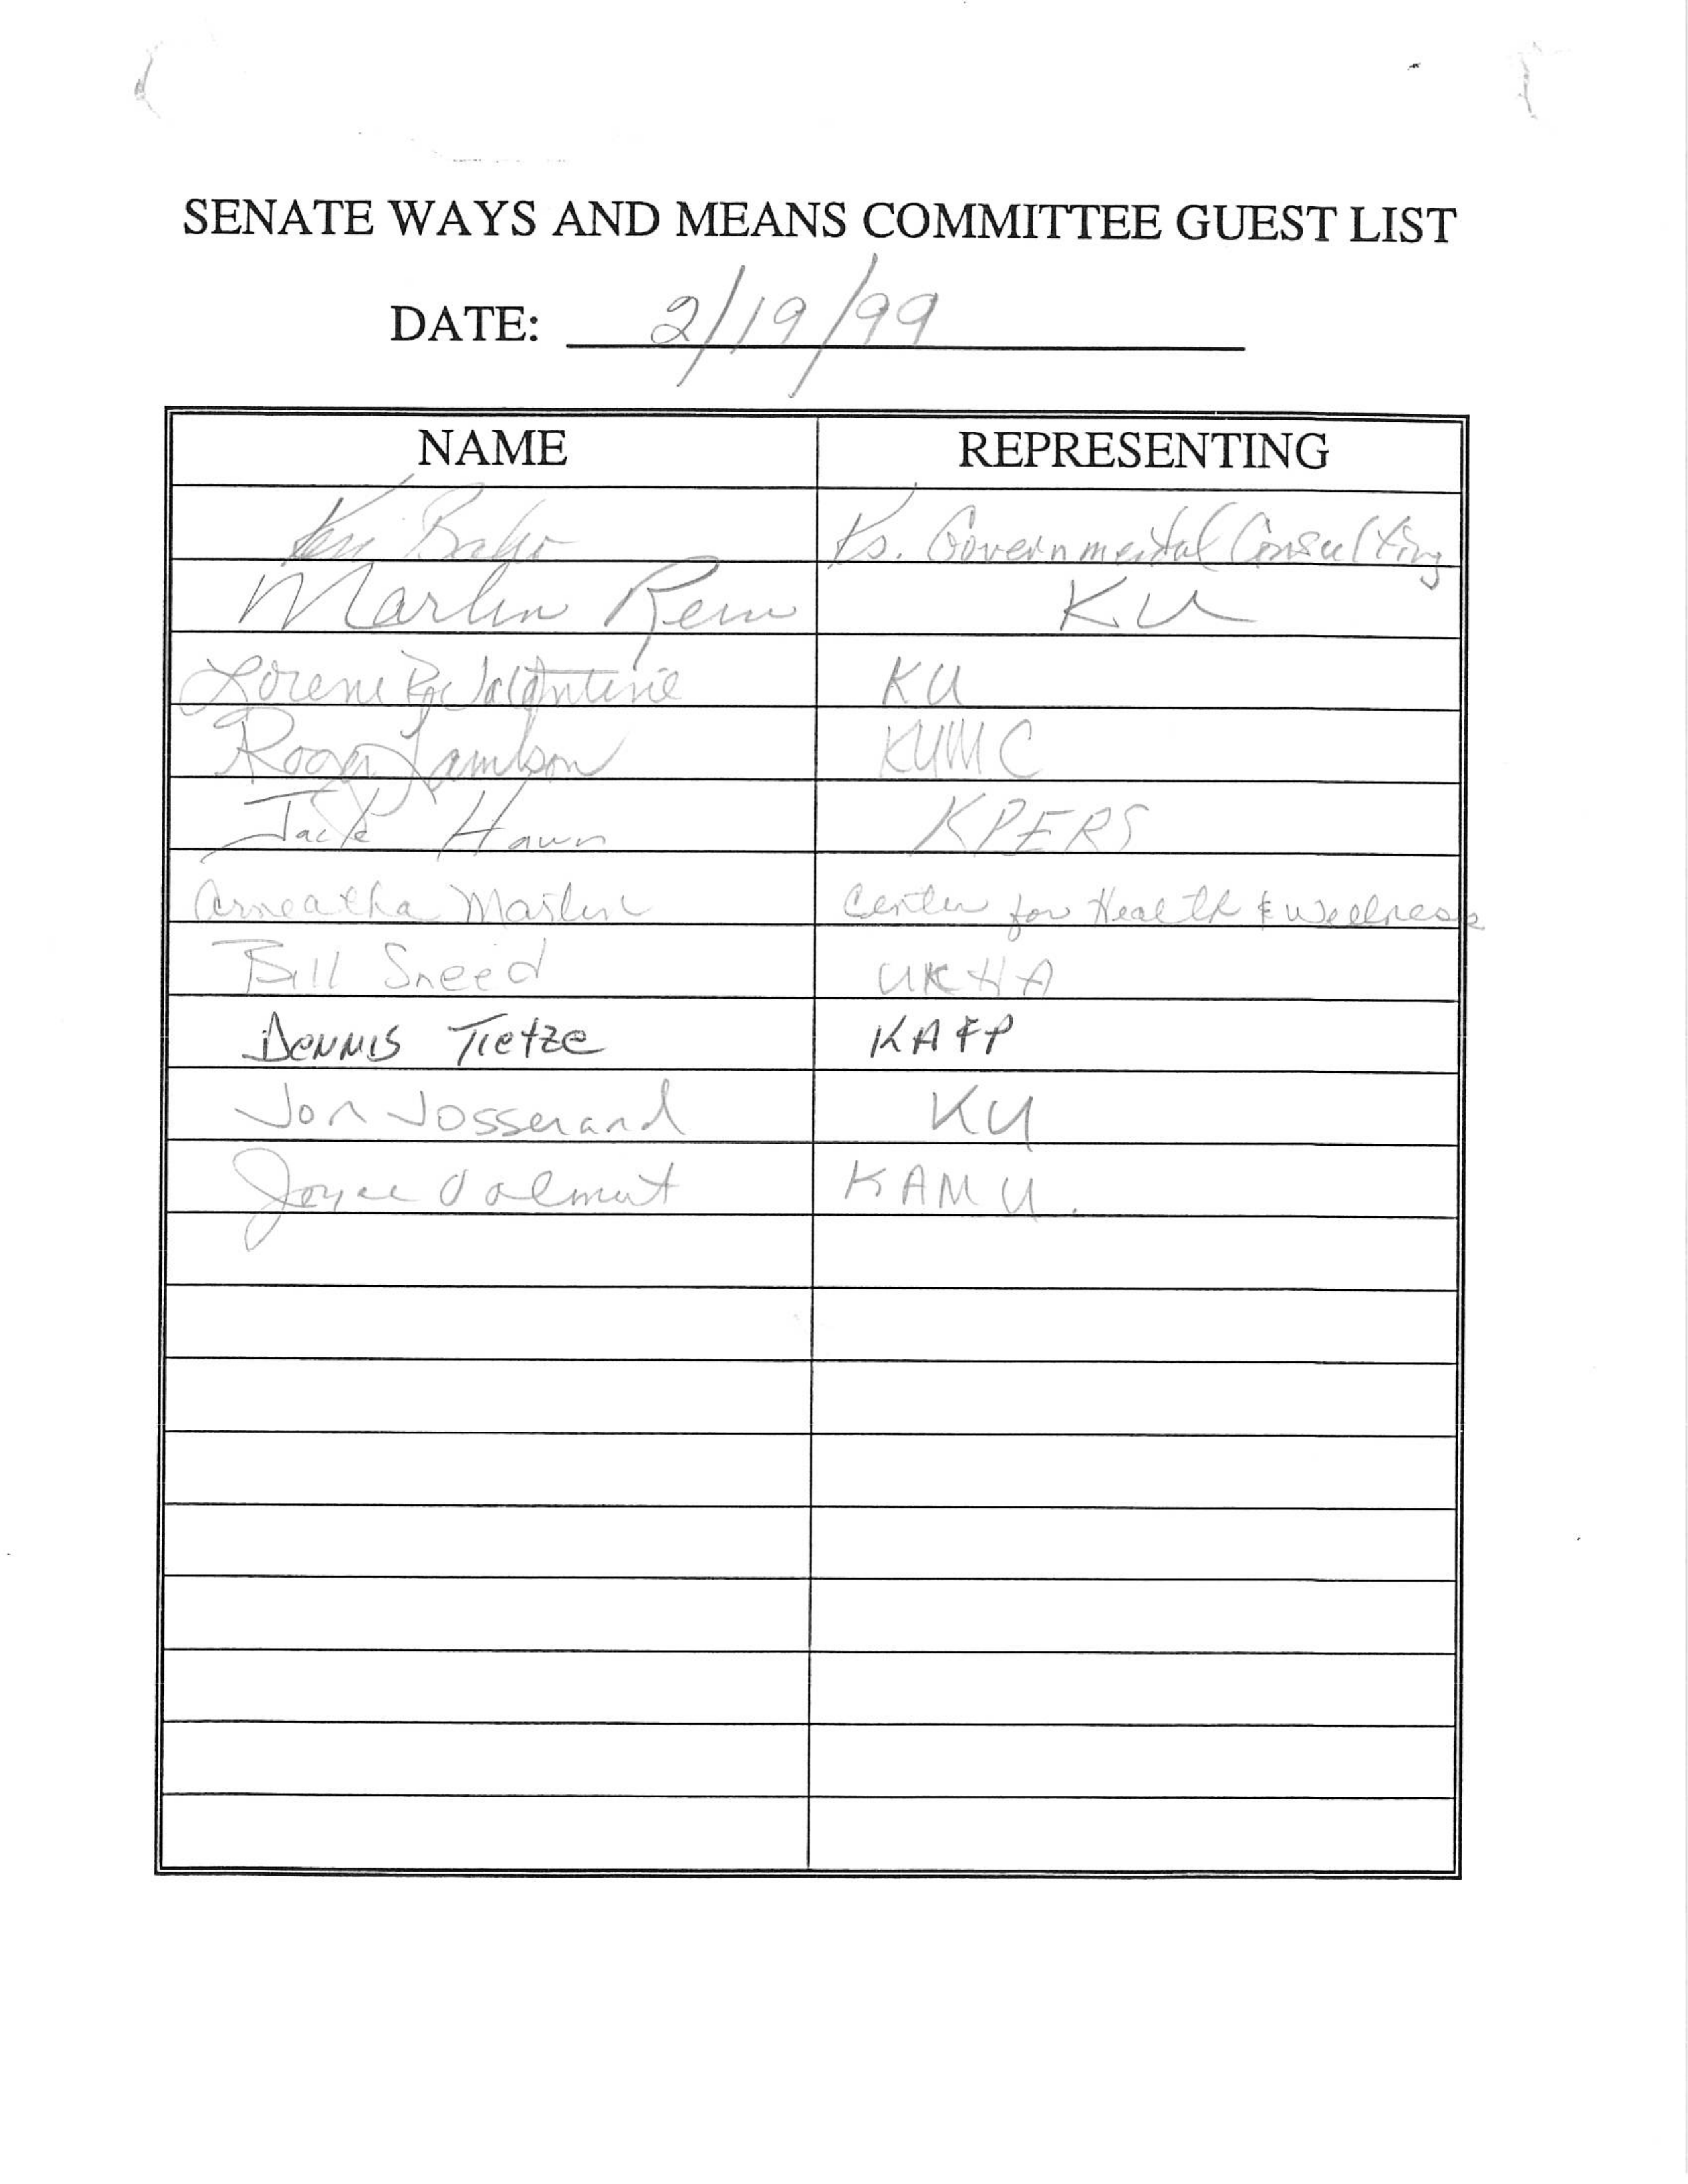 SENATE WAYS AND MEANS COMMITTEE GUEST LIST
DATE: 2/19/99
NAME REPRESENTING
Ks. Governmental Consulting
Marlin Rein KU
Lorene Valentine KU
Roger Lambson KUMC
Jack Hawn KPERS
Arneatha Martin Center for Health & Wellness
Bill Sneed UKHA
Dennis Tietze KAFP
Jon Josserand KU
Joyce Volmut KAMU.